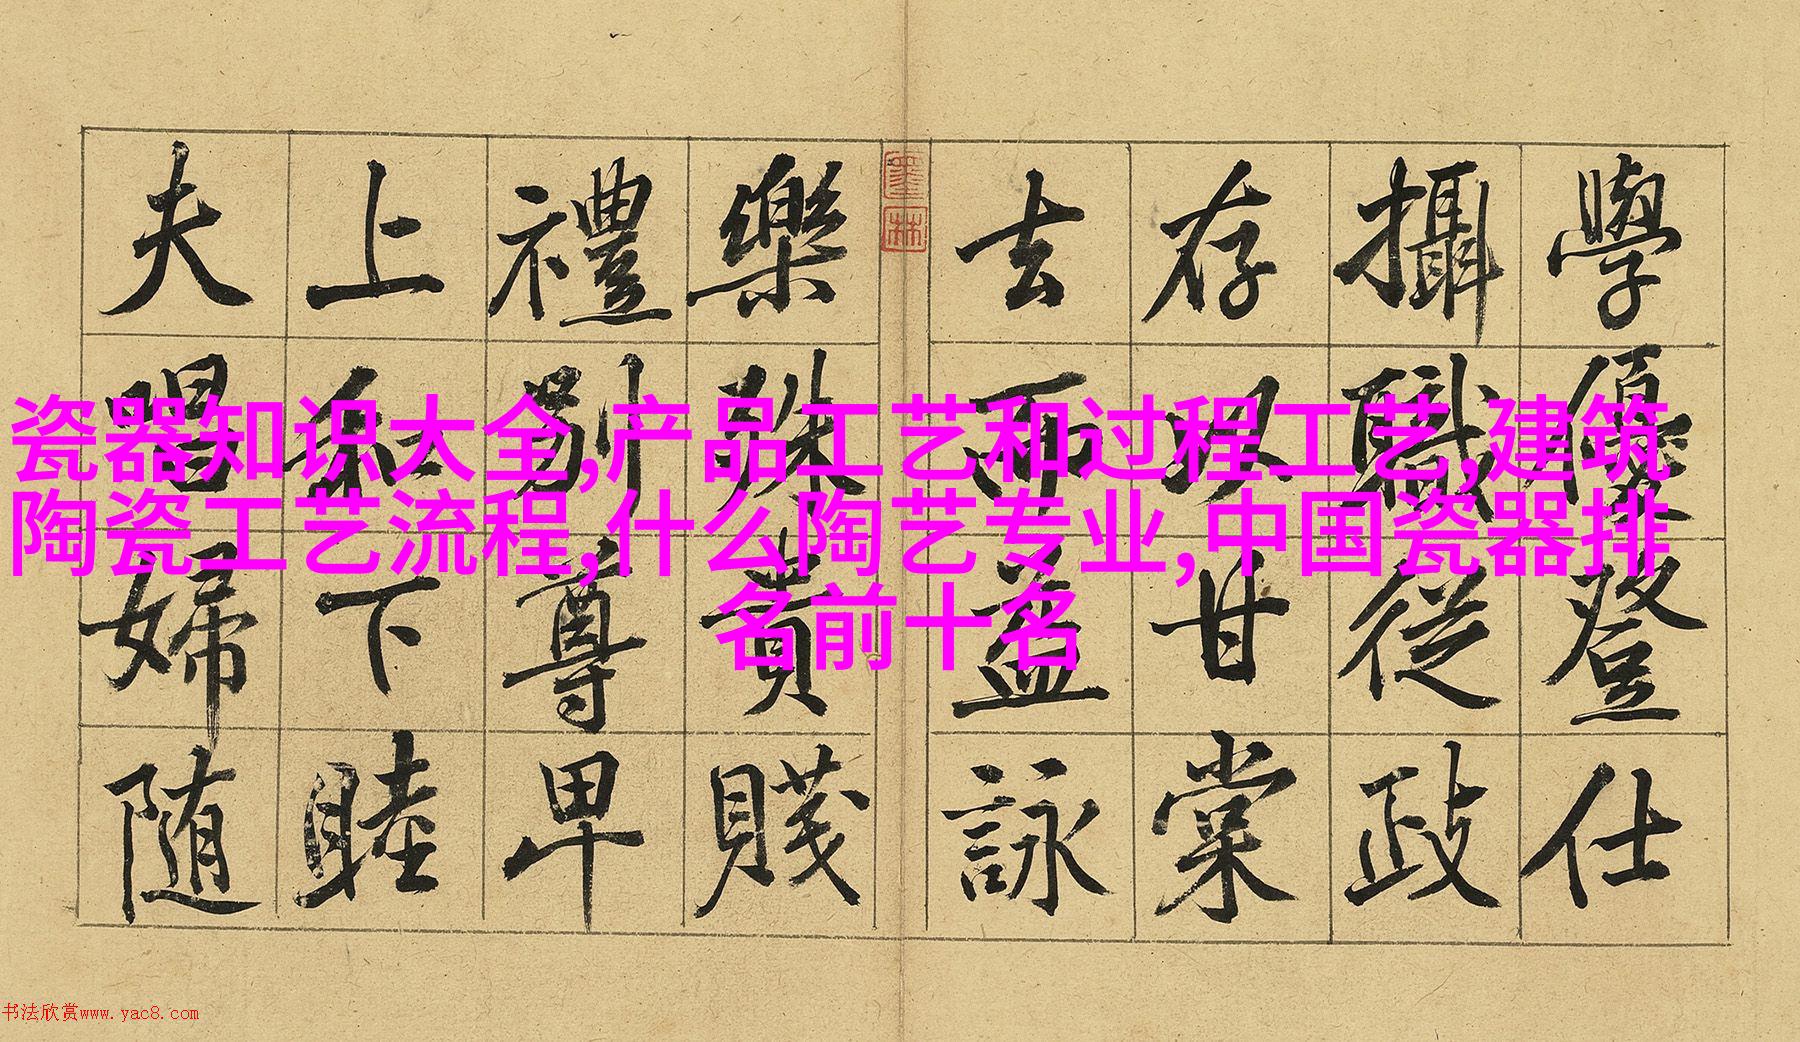 學優登仕
攝職從政
存以甘棠
去而益詠
樂殊貴賤
禮別尊卑
上和下睦
夫唱婦随
墨林
瓷器知识大全,产品工艺和过程工艺,建筑
陶瓷工艺流程,什么陶艺专业,中国瓷器排
名前十名
书法欣赏www.yac8.com